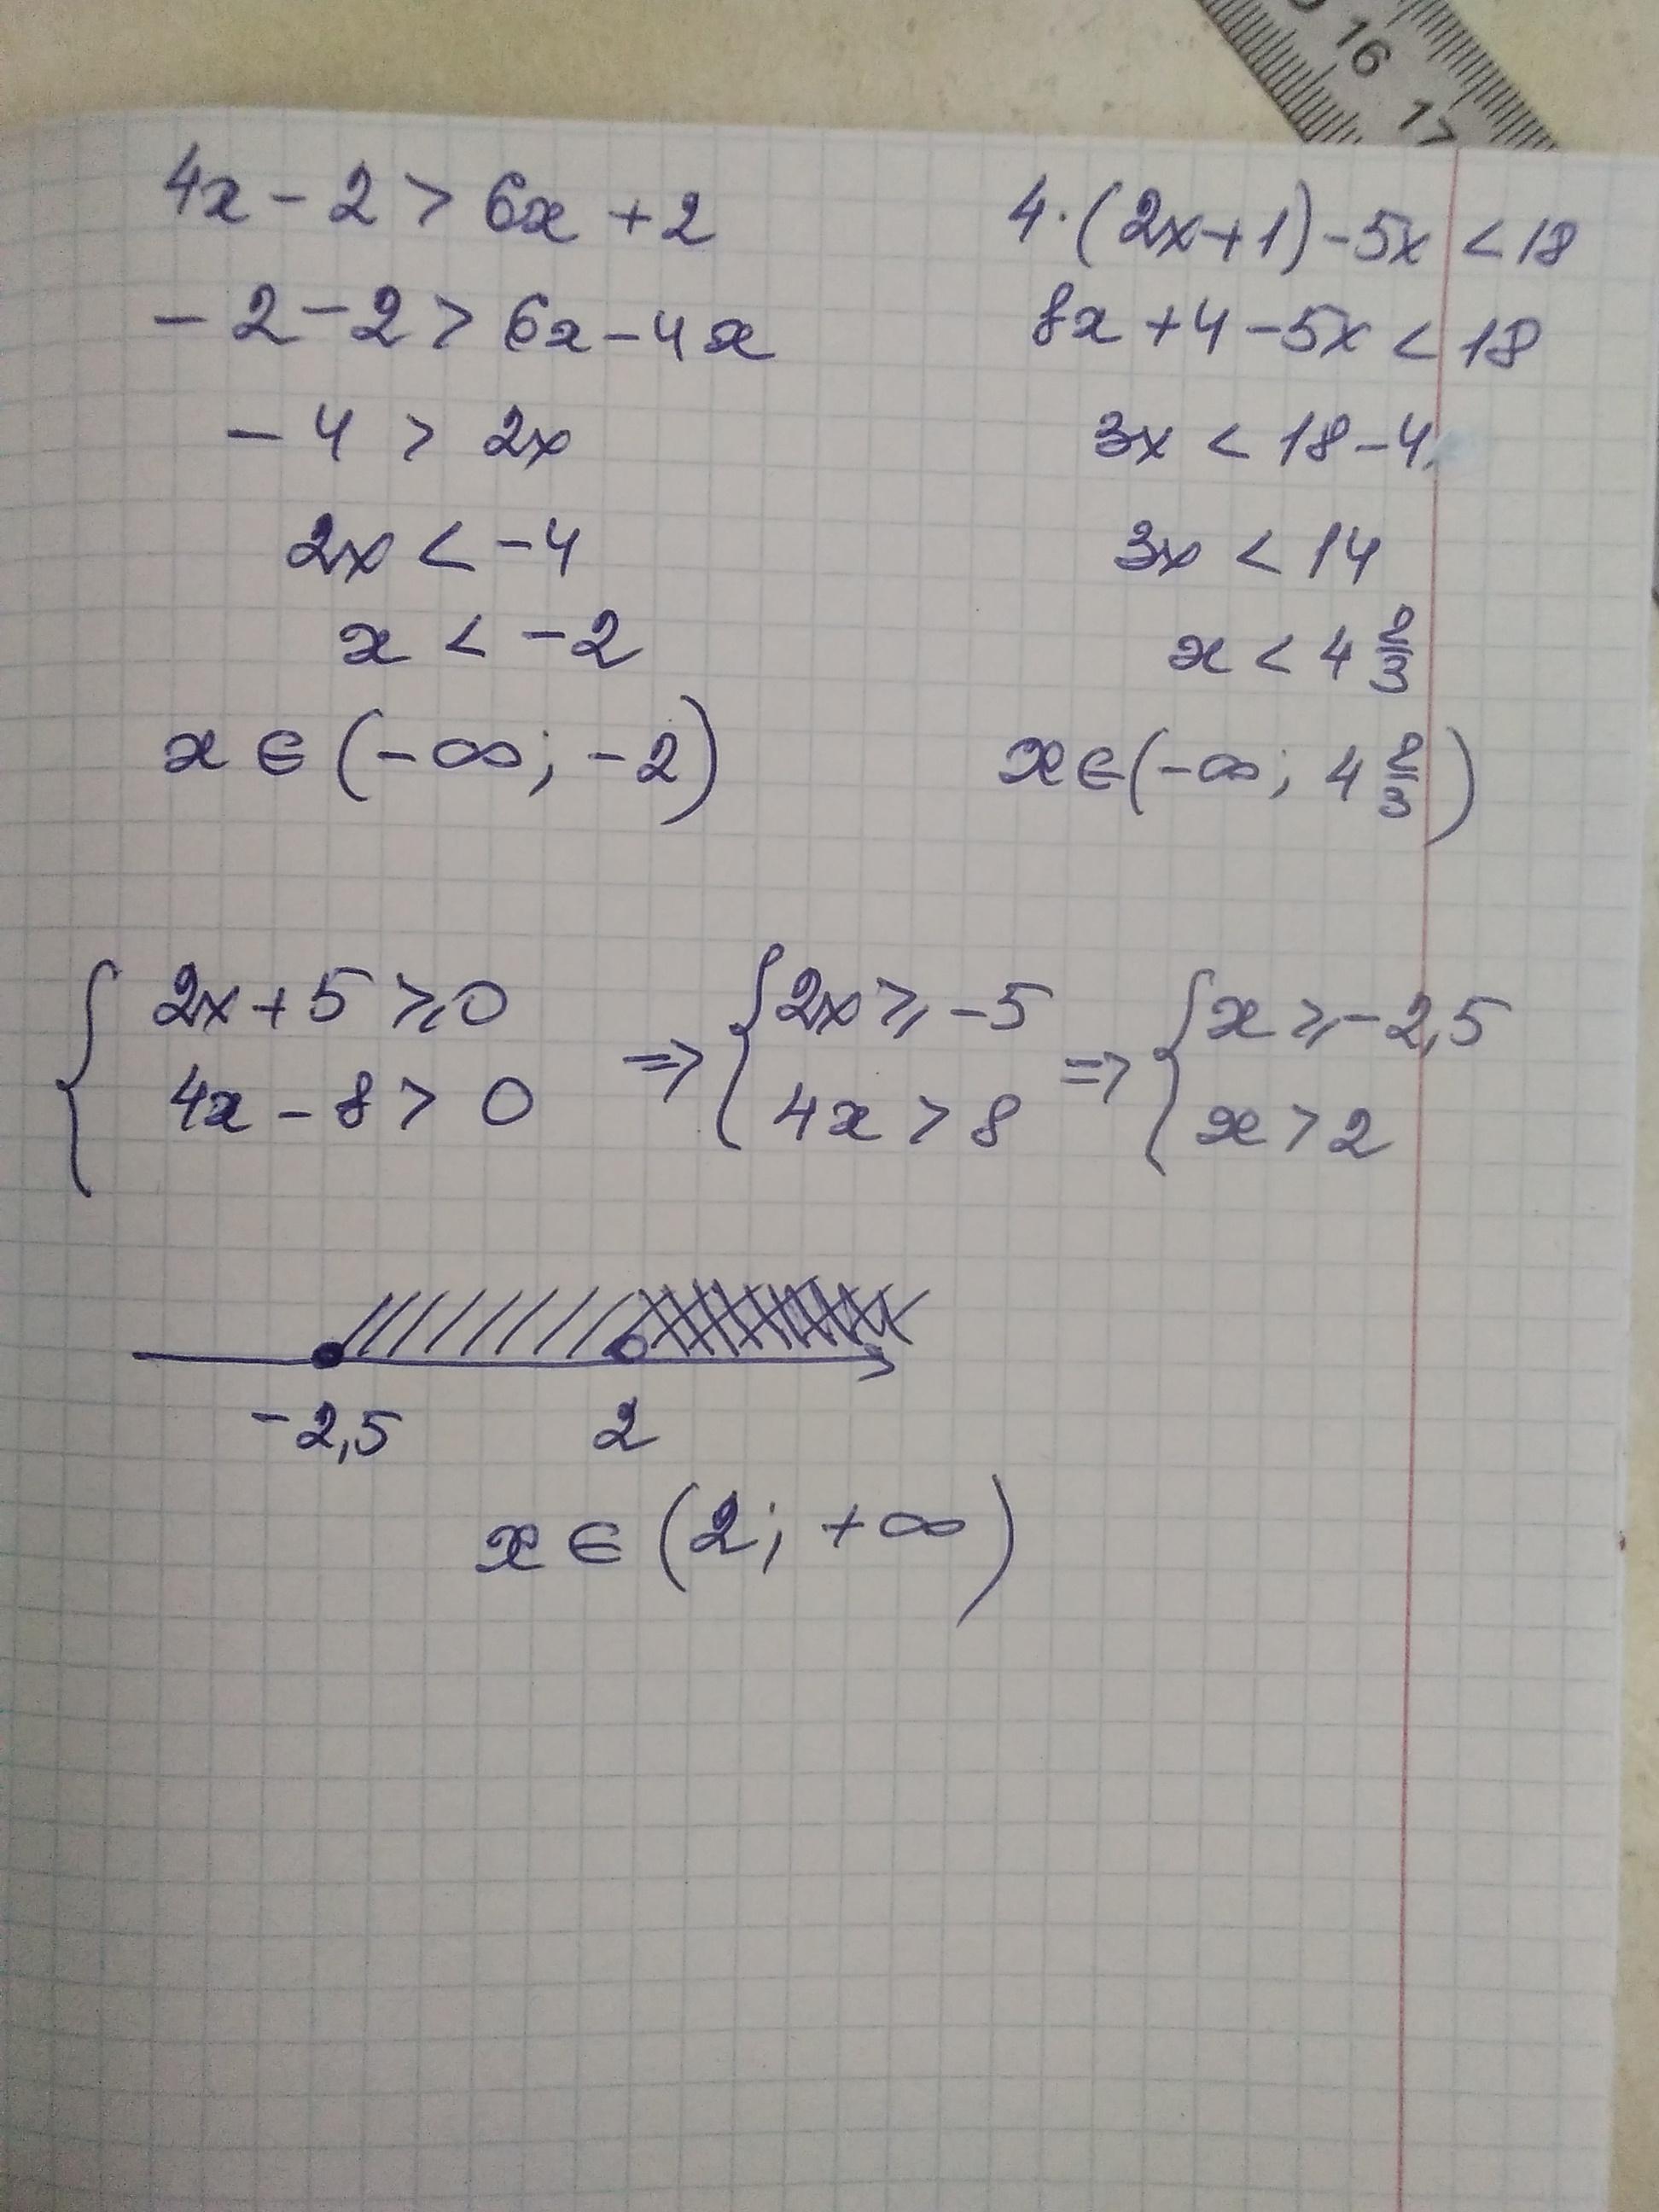 16
17
4x - 2 > 6x + 2
- 2 - 2 > 6x - 4x
- 4 > 2x
2x < -4
x < -2
x ∈ (-∞; -2)
4·(2x+1) - 5x < 18
8x + 4 - 5x < 18
3x < 18 - 4
3x < 14
x < 4 2/3
x ∈ (-∞; 4 2/3)
{ 2x + 5 ⩾ 0 => { 2x ⩾ -5 => { x ⩾ -2,5
4x - 8 > 0 4x > 8 x > 2
-2,5 2
x ∈ (2; +∞)